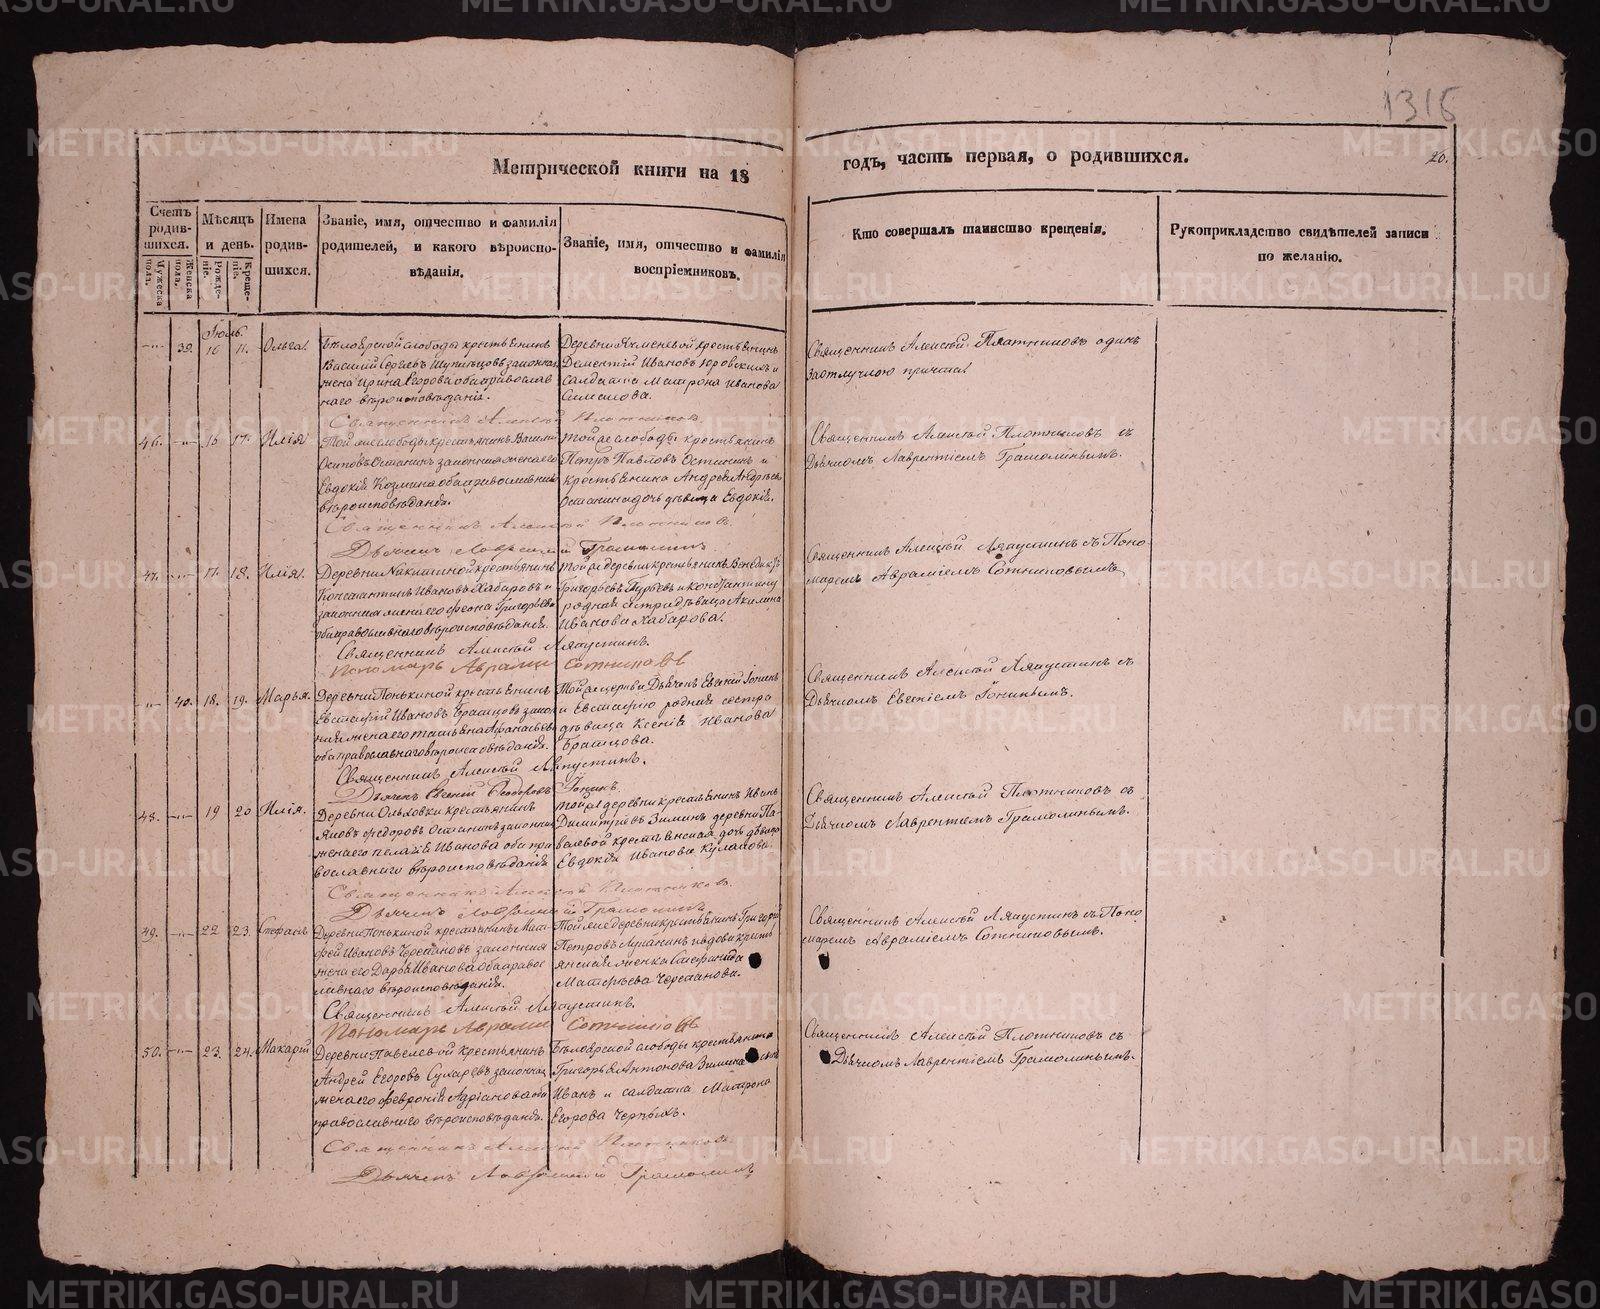 METRIKI.GASO-URAL.RU
1315
Метрической книги на 18 годъ, часть первая, о родившихся.
20.
Счетъ родив-шихся.
Мужеска пола.
Женска пола.
Мѣсяцъ и день.
Рожде-ніе.
Креще-ніе.
Имена родив-шихся.
Званіе, имя, отчество и фамилія
родителей, и какого вѣроиспо-
вѣданія.
Званіе, имя, отчество и фамилія
воспріемниковъ.
Кто совершалъ таинство крещенія.
Рукоприкладство свидѣтелей записи
по желанію.
Іюль
39. 16 17. Ольга.
Бѣлоярской слободы крестьянинъ
Василій Сергѣевъ законная
жена Ирина Егорова оба православ
наго вѣроисповѣданія.
Деревни крестьянинъ
Дементій Ивановъ и
Солдатка Матрона Иванова
Священникъ Алексѣй Плотниковъ одинъ
за отлучкою причта.
Священникъ Алексѣй Плотниковъ.
46. 16 17. Илія
Той же слободы крестьянинъ Василій
Осиповъ Останинъ законная жена его
Евдокія Козмина оба православнаго
вѣроисповѣданія.
Той же слободы крестьянинъ
Петръ Павловъ Останинъ и
крестьянина Андрея Андреева
Останина дочь дѣвица Евдокія.
Священникъ Алексѣй Плотниковъ съ
Дьячкомъ Лаврентіемъ Грамолинымъ.
Священникъ Алексѣй Плотниковъ.
Дьячекъ Лаврентій Грамолинъ
47. 17. 18. Илія.
Деревни крестьянинъ
Константинъ Ивановъ Хабаровъ и
законная жена его Григорьева
оба православнаго вѣроисповѣданія.
Той же деревни крестьянинъ Венедиктъ
Григорьевъ и Константину
родная сестра дѣвица Акилина
Иванова Хабарова.
Священникъ Алексѣй Ляпустинъ съ Поно
маремъ Авраміемъ Сотниковымъ
Священникъ Алексѣй Ляпустинъ.
Пономарь Аврамій Сотниковъ
40. 18. 19. Марья.
Деревни Понькиной крестьянинъ
Евстафій Ивановъ Братцовъ закон
ная жена его Татьяна Афанасьева
оба православнаго вѣроисповѣданія.
Той же церкви Дьячекъ Евгеній
и Евстафію родная сестра
дѣвица Ксенія Иванова
Братцова.
Священникъ Алексѣй Ляпустинъ съ
Дьячкомъ
Священникъ Алексѣй Ляпустинъ.
Дьячекъ Евгеній Ѳеодоровъ
48. 19 20 Илія.
Деревни Ольховки крестьянинъ
Яковъ Федоровъ Останинъ законная
жена его Пелагія Иванова оба пра
вославнаго вѣроисповѣданія
Той же деревни крестьянинъ Иванъ
Димитріевъ Зиминъ деревни Па
велевой крестьянская дочь дѣвица
Евдокія Иванова Кулакова.
Священникъ Алексѣй Плотниковъ съ
Дьячкомъ Лаврентіемъ Грамолинымъ.
Священникъ Алексѣй Плотниковъ.
Дьячекъ Лаврентій Грамолинъ
49. 22 23. Стефанъ
Деревни Понькиной крестьянинъ Мат
фей Ивановъ Черепановъ законная
жена его Дарья Иванова оба правос
лавнаго вѣроисповѣданія.
Той же деревни крестьянинъ Григорій
Петровъ Лупанинъ и вдова кресть
янская женка Стефанида
Матфѣева Черепанова.
Священникъ Алексѣй Ляпустинъ съ Поно
маремъ Авраміемъ Сотниковымъ.
Священникъ Алексѣй Ляпустинъ.
Пономарь Аврамій Сотниковъ
50. 23. 24. Макарій
Деревни Павелевой крестьянинъ
Андрей Егоровъ Сухаревъ законная
жена его Февронія Адріанова оба
православнаго вѣроисповѣданія.
Бѣлоярской слободы крестьянина
Григорья Антонова Зимина сынъ
Иванъ и солдатка Матрона
Егорова Черныхъ.
Священникъ Алексѣй Плотниковъ съ
Дьячкомъ Лаврентіемъ Грамолинымъ.
Священникъ Алексѣй Плотниковъ
Дьячекъ Лаврентій Грамолинъ